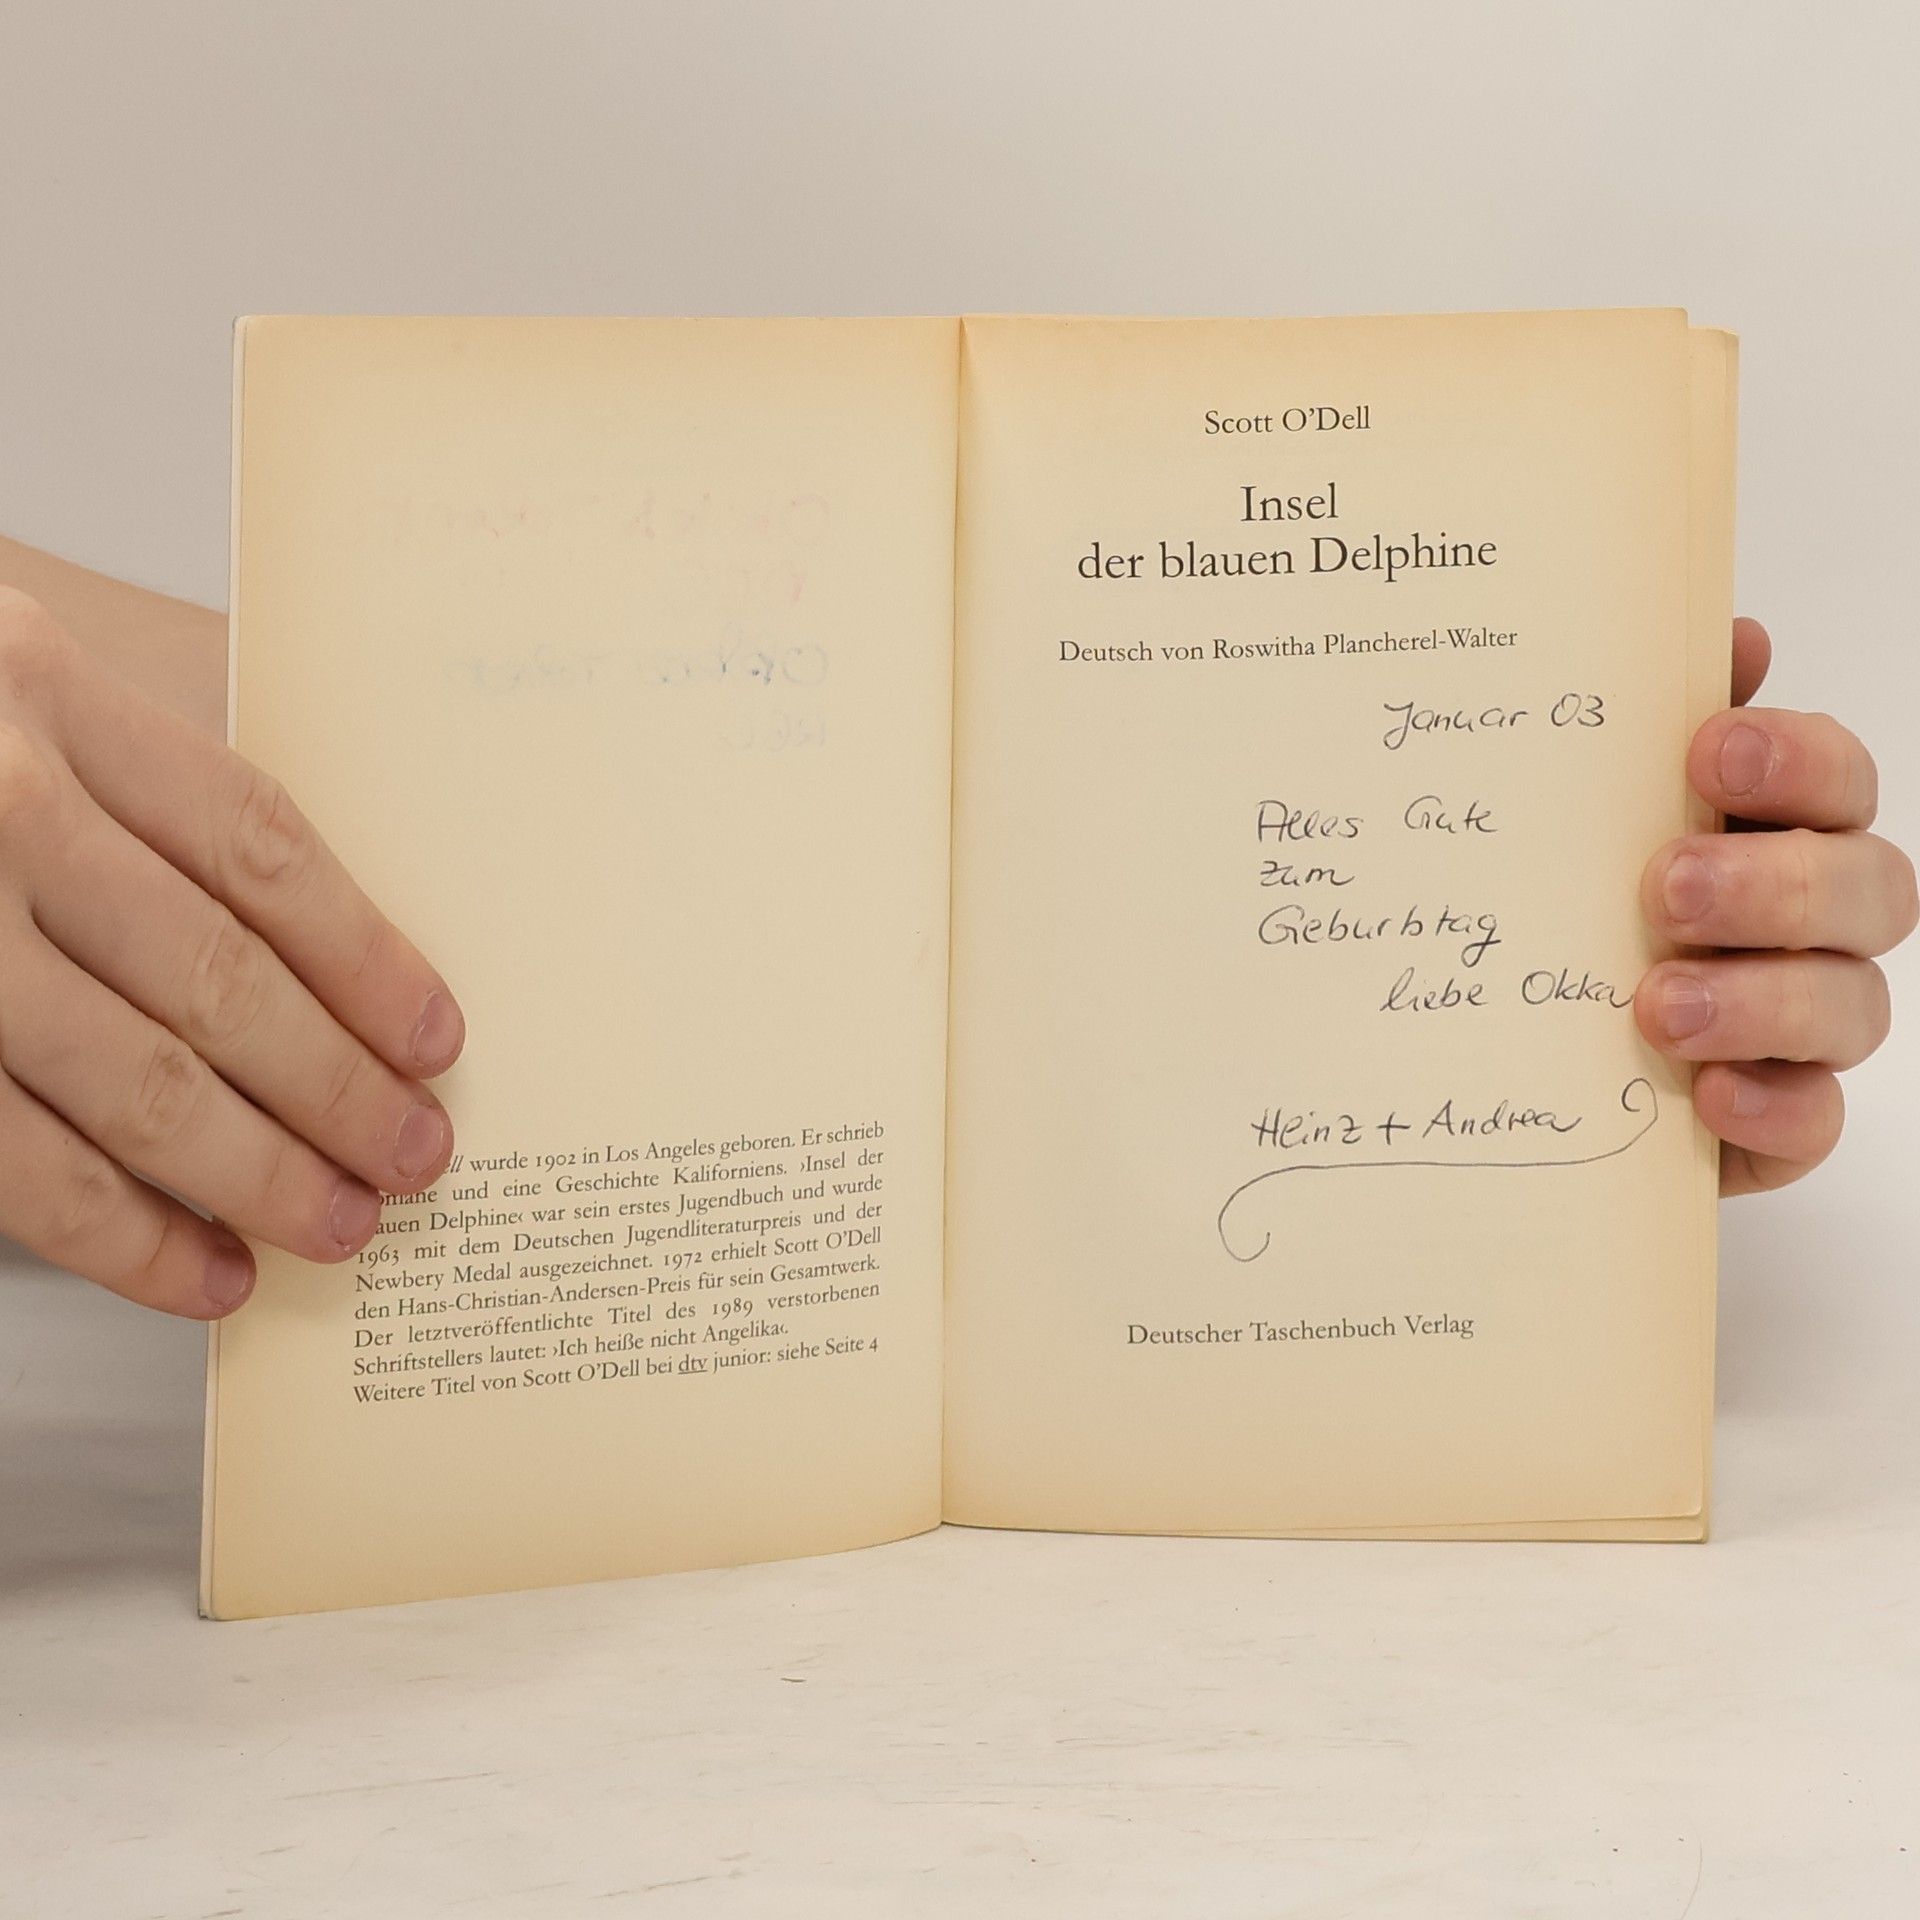 ell wurde 1902 in Los Angeles geboren. Er schrieb
omane und eine Geschichte Kaliforniens. ›Insel der
auen Delphine‹ war sein erstes Jugendbuch und wurde
1963 mit dem Deutschen Jugendliteraturpreis und der
Newbery Medal ausgezeichnet. 1972 erhielt Scott O'Dell
den Hans-Christian-Andersen-Preis für sein Gesamtwerk.
Der letztveröffentlichte Titel des 1989 verstorbenen
Schriftstellers lautet: ›Ich heiße nicht Angelika‹.
Weitere Titel von Scott O'Dell bei dtv junior: siehe Seite 4
Scott O'Dell
Insel
der blauen Delphine
Deutsch von Roswitha Plancherel-Walter
Januar 03
Alles Gute
zum
Geburtstag
liebe Okka
Heinz + Andrea
Deutscher Taschenbuch Verlag